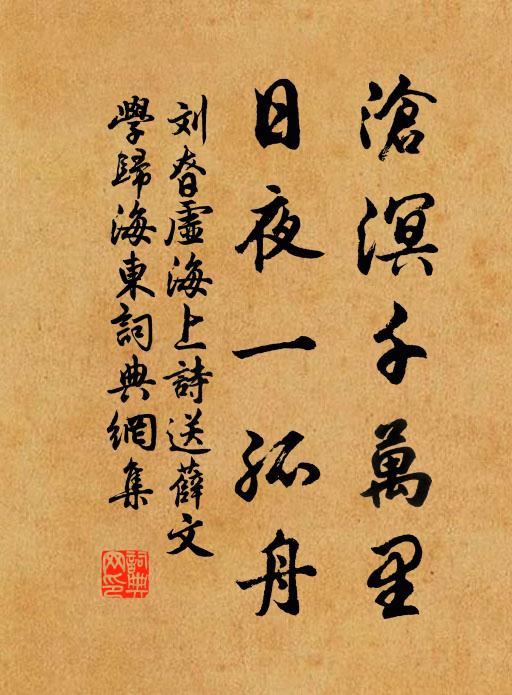 滄溟千萬里
日夜一孤舟
刘眘虛海上詩送薛文
學歸海東詞典網集
詞典网印